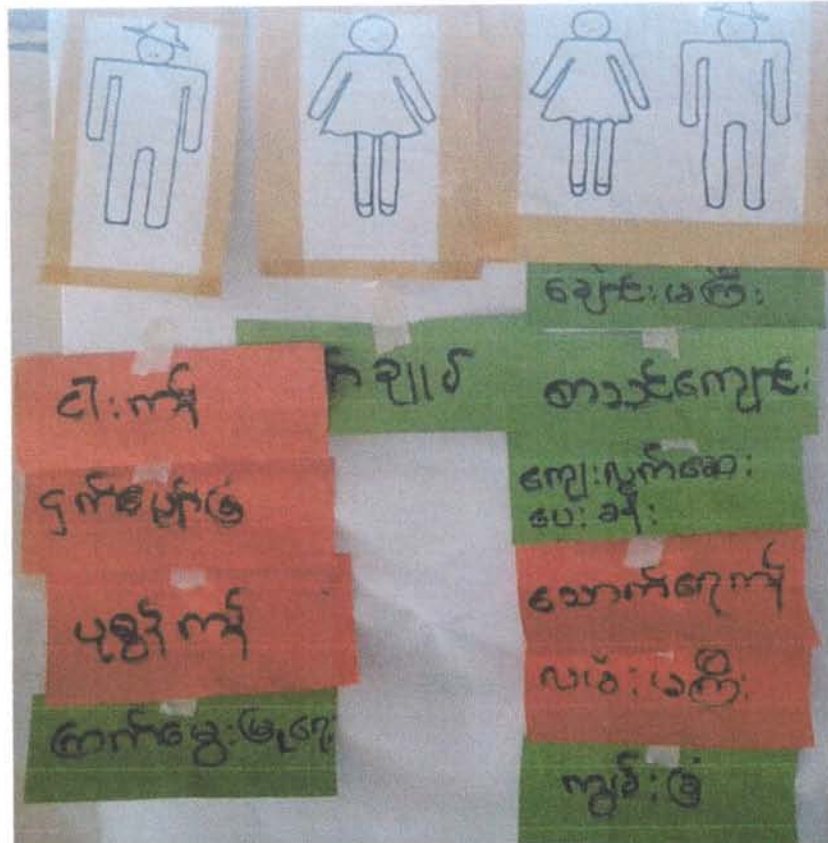 ငါးကန်
ငှက်ပျောခြံ
ပုစွန်ကန်
ကြက်မွေးမြူရေး
ချုပ်
ချောင်းမကြီး
စာသင်ကျောင်း
ကျေးလက်ဆေး
ပေးခန်း
သောက်ရေကန်
လမ်းမကြီး
ကျွန်းခြံ